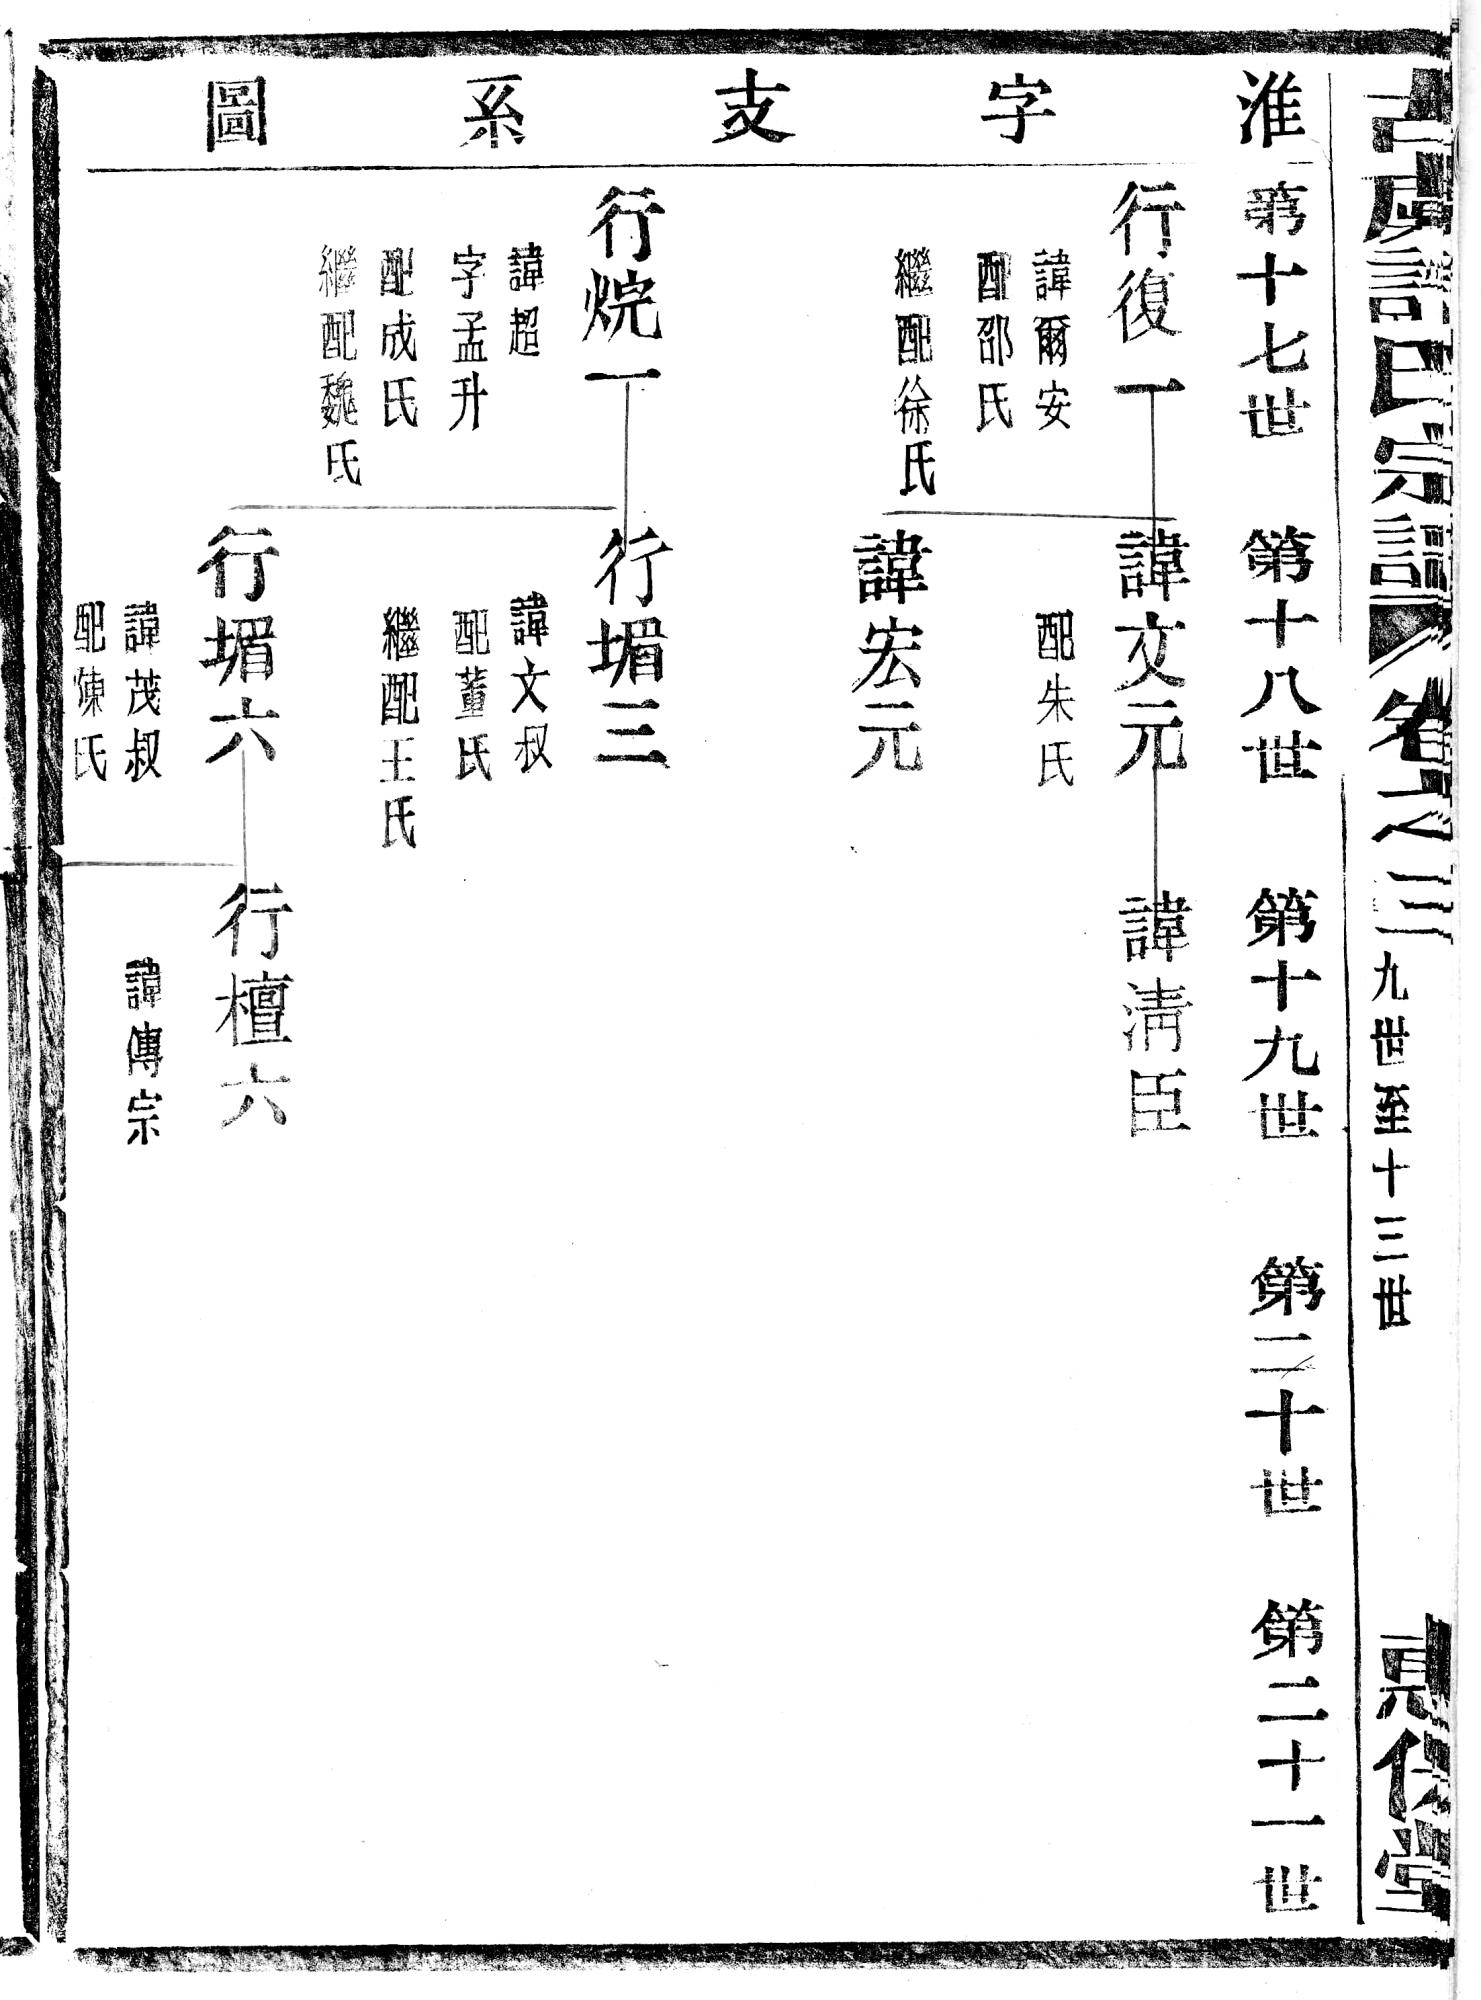 淮字支系圖
第十七世
第十八世
第十九世
第二十世
第二十一世
行復一
諱爾安
配邵氏
繼配徐氏
諱文元
配朱氏
諱淸臣
諱宏元
行烷一
諱超
字孟升
配成氏
繼配魏氏
行堳三
諱文叔
配董氏
繼配王氏
行堳六
諱茂叔
配陳氏
行檀六
諱傳宗
宗譜
卷之三
九世至十三世
堂